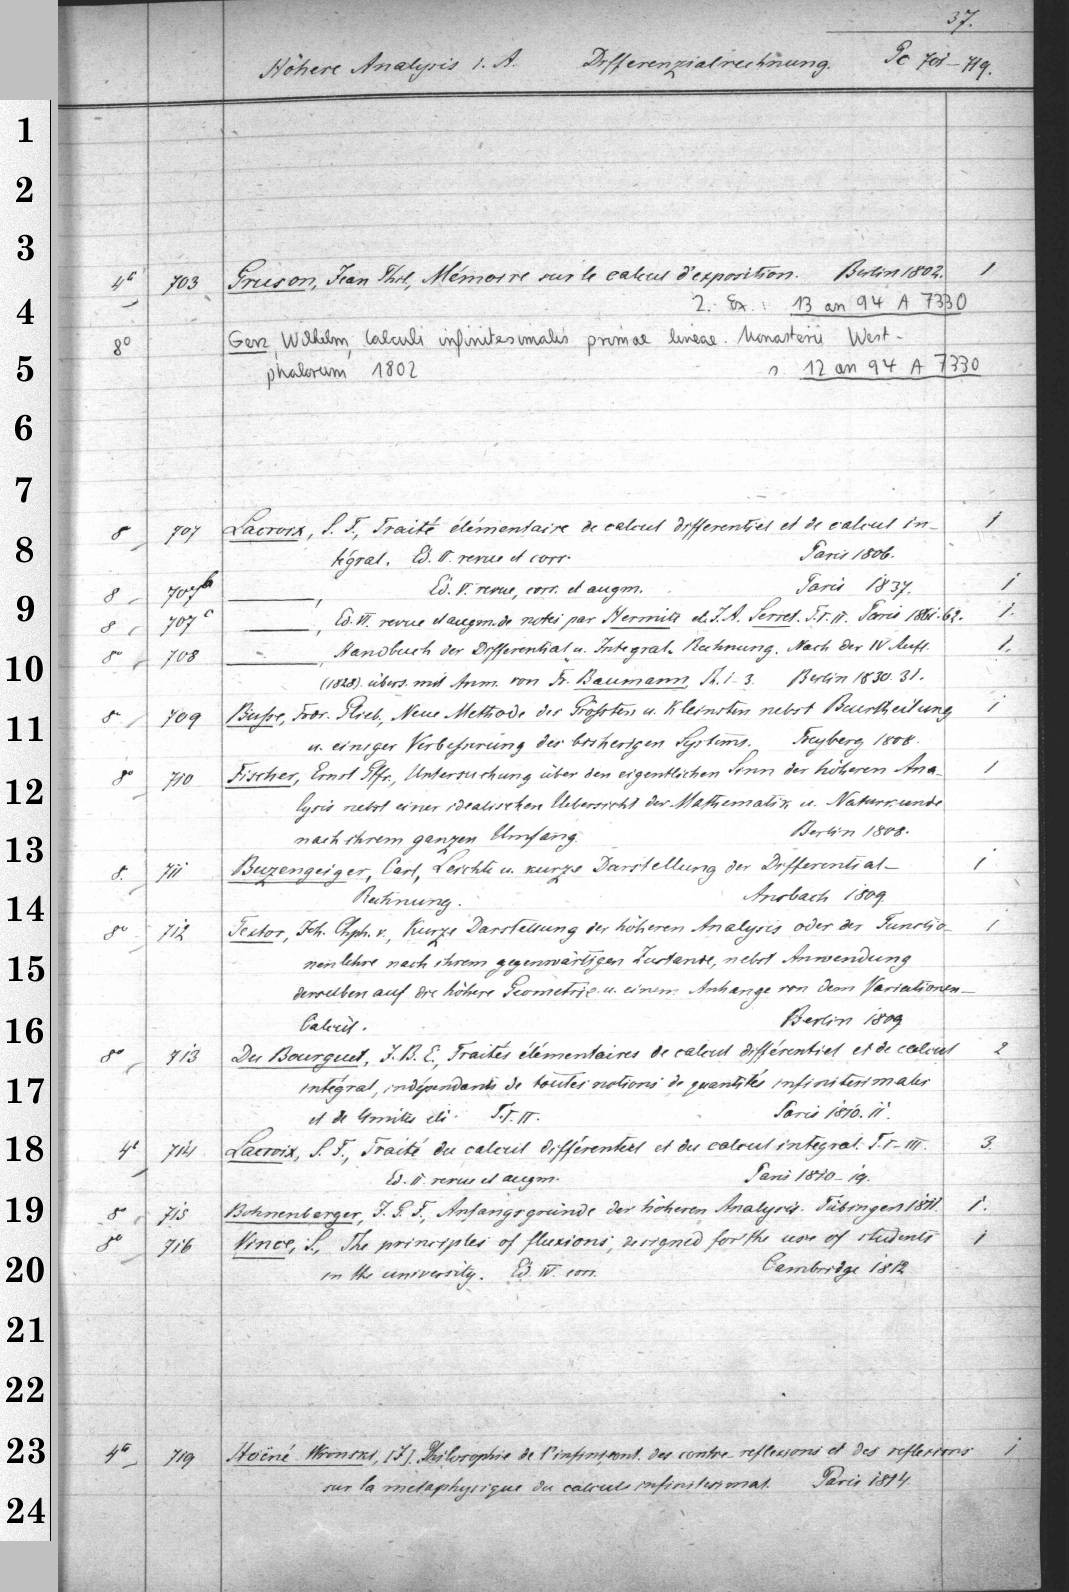 37.
Höhere Analysis 1. A. Differenzialrechnung. Pc 703–719.
1
2
3
4° 703 Gruson, Jean Phil., Mémoire sur le calcul d'exposition. Berlin 1802. 1
4 2. Ex.: 13 an 94 A 7330
8° Gerz, Wilhelm, Calculi infinitesimalis primae lineae. Monasterii West-
5 phalorum 1802 12 an 94 A 7330
6
7
8 707 Lacroix, S. F., Traité élémentaire de calcul differentiel et de calcul in- 1
8 tégral. Ed. II. revue et corr. Paris 1806.
8 707 b ———, Ed. V. revue, corr. et augm. Paris 1837. 1
9 8 707 c ———, Ed. VI. revue et augm. de notes par Hermite et J. A. Serret. T. I. II. Paris 1861-62. 1.
8° 708 ———, Handbuch der Differential u. Integral-Rechnung. Nach der IV Aufl. 1.
10 (1828) übers. mit Anm. von Fr. Baumann, Th. 1-3. Berlin 1830. 31.
8° 709 Buſse, Frdr. Glieb., Neue Methode des Gröſsten u. Kleinsten nebst Beurtheilung 1
11 u. einiger Verbeſserung des bisherigen Systems. Freyberg 1808.
8° 710 Fischer, Ernst Gtfr., Untersuchung über den eigentlichen Sinn der höheren Ana- 1
12 lysis nebst einer idealischen Uebersicht der Mathematik u. Naturkunde
nach ihrem ganzen Umfang. Berlin 1808.
13 8. 711 Buzengeiger, Carl, Leichte u. kurze Darstellung der Differential- 1
14 Rechnung. Ansbach 1809
8° 712 Textor, Joh. Chph. v., Kurze Darstellung der höheren Analysis oder der Functio- 1
15 nenlehre nach ihrem gegenwärtigen Zustande, nebst Anwendung
derselben auf die höhere Geometrie u. einem Anhange von dem Variationen-
16 Calcül. Berlin 1809
8° 713 Du Bourguet, J. B. E., Traités élémentaires de calcul différentiel et de calcul 2
17 intégral, indépendants de toutes notions de quantités infinitesimales
et de limites etc. T. I. II. Paris 1810. 11.
18 4° 714 Lacroix, S. F., Traité du calcul différentiel et du calcul integral. T. I–III. 3.
Ed. II. revue et augm. Paris 1810–19.
19 8° 715 Bohnenberger, J. G. F., Anfangsgründe der höheren Analysis. Tübingen 1811. 1.
8° 716 Vince, S., The principles of fluxions, designed for the use of students 1
20 in the university. Ed. IV. corr. Cambridge 1812
21
22
23 4° 719 Hoëné Wronski, [J.] Philosophie de l'infini cont. des contre-reflexions et des reflexions 1
sur la metaphysique du calcul infinitesimal. Paris 1814
24